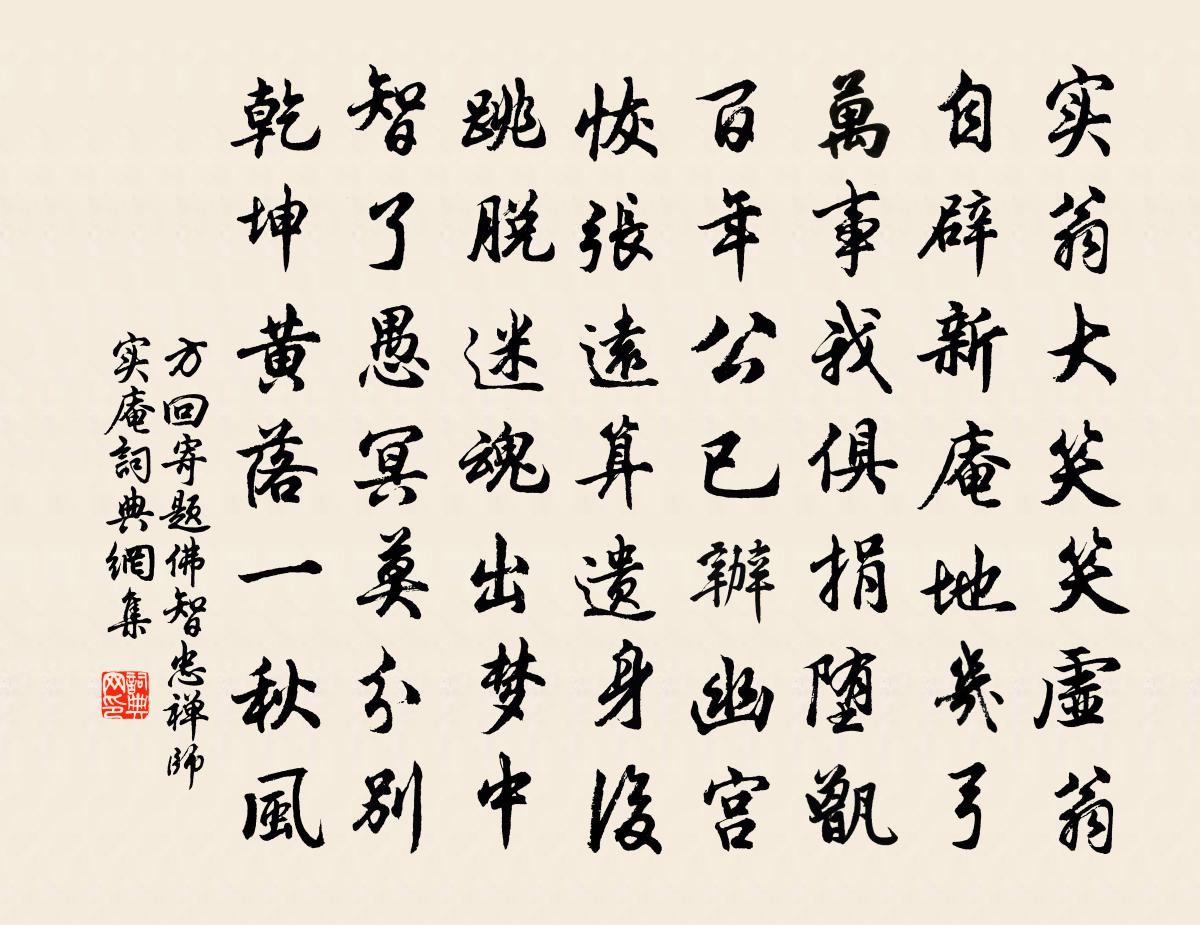 实翁大笑笑虚翁
自辟新庵地幾弓
萬事我俱捐堕甑
百年公已辦幽宫
恢張遠算遗身後
跳脱迷魂出梦中
智了愚冥莫分别
乾坤黄落一秋風
方回寄题佛智忠禅师
实庵詞典網集
詞典网印